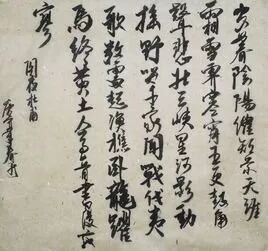 歲暮陰陽催短景天涯
霜雪霽寒宵五更鼓角
聲悲壯三峽星河影動
搖野哭千家聞戰伐夷
歌數處起漁樵臥龍躍
馬終黃土人事音書漫寂
寥
閣夜杜甫